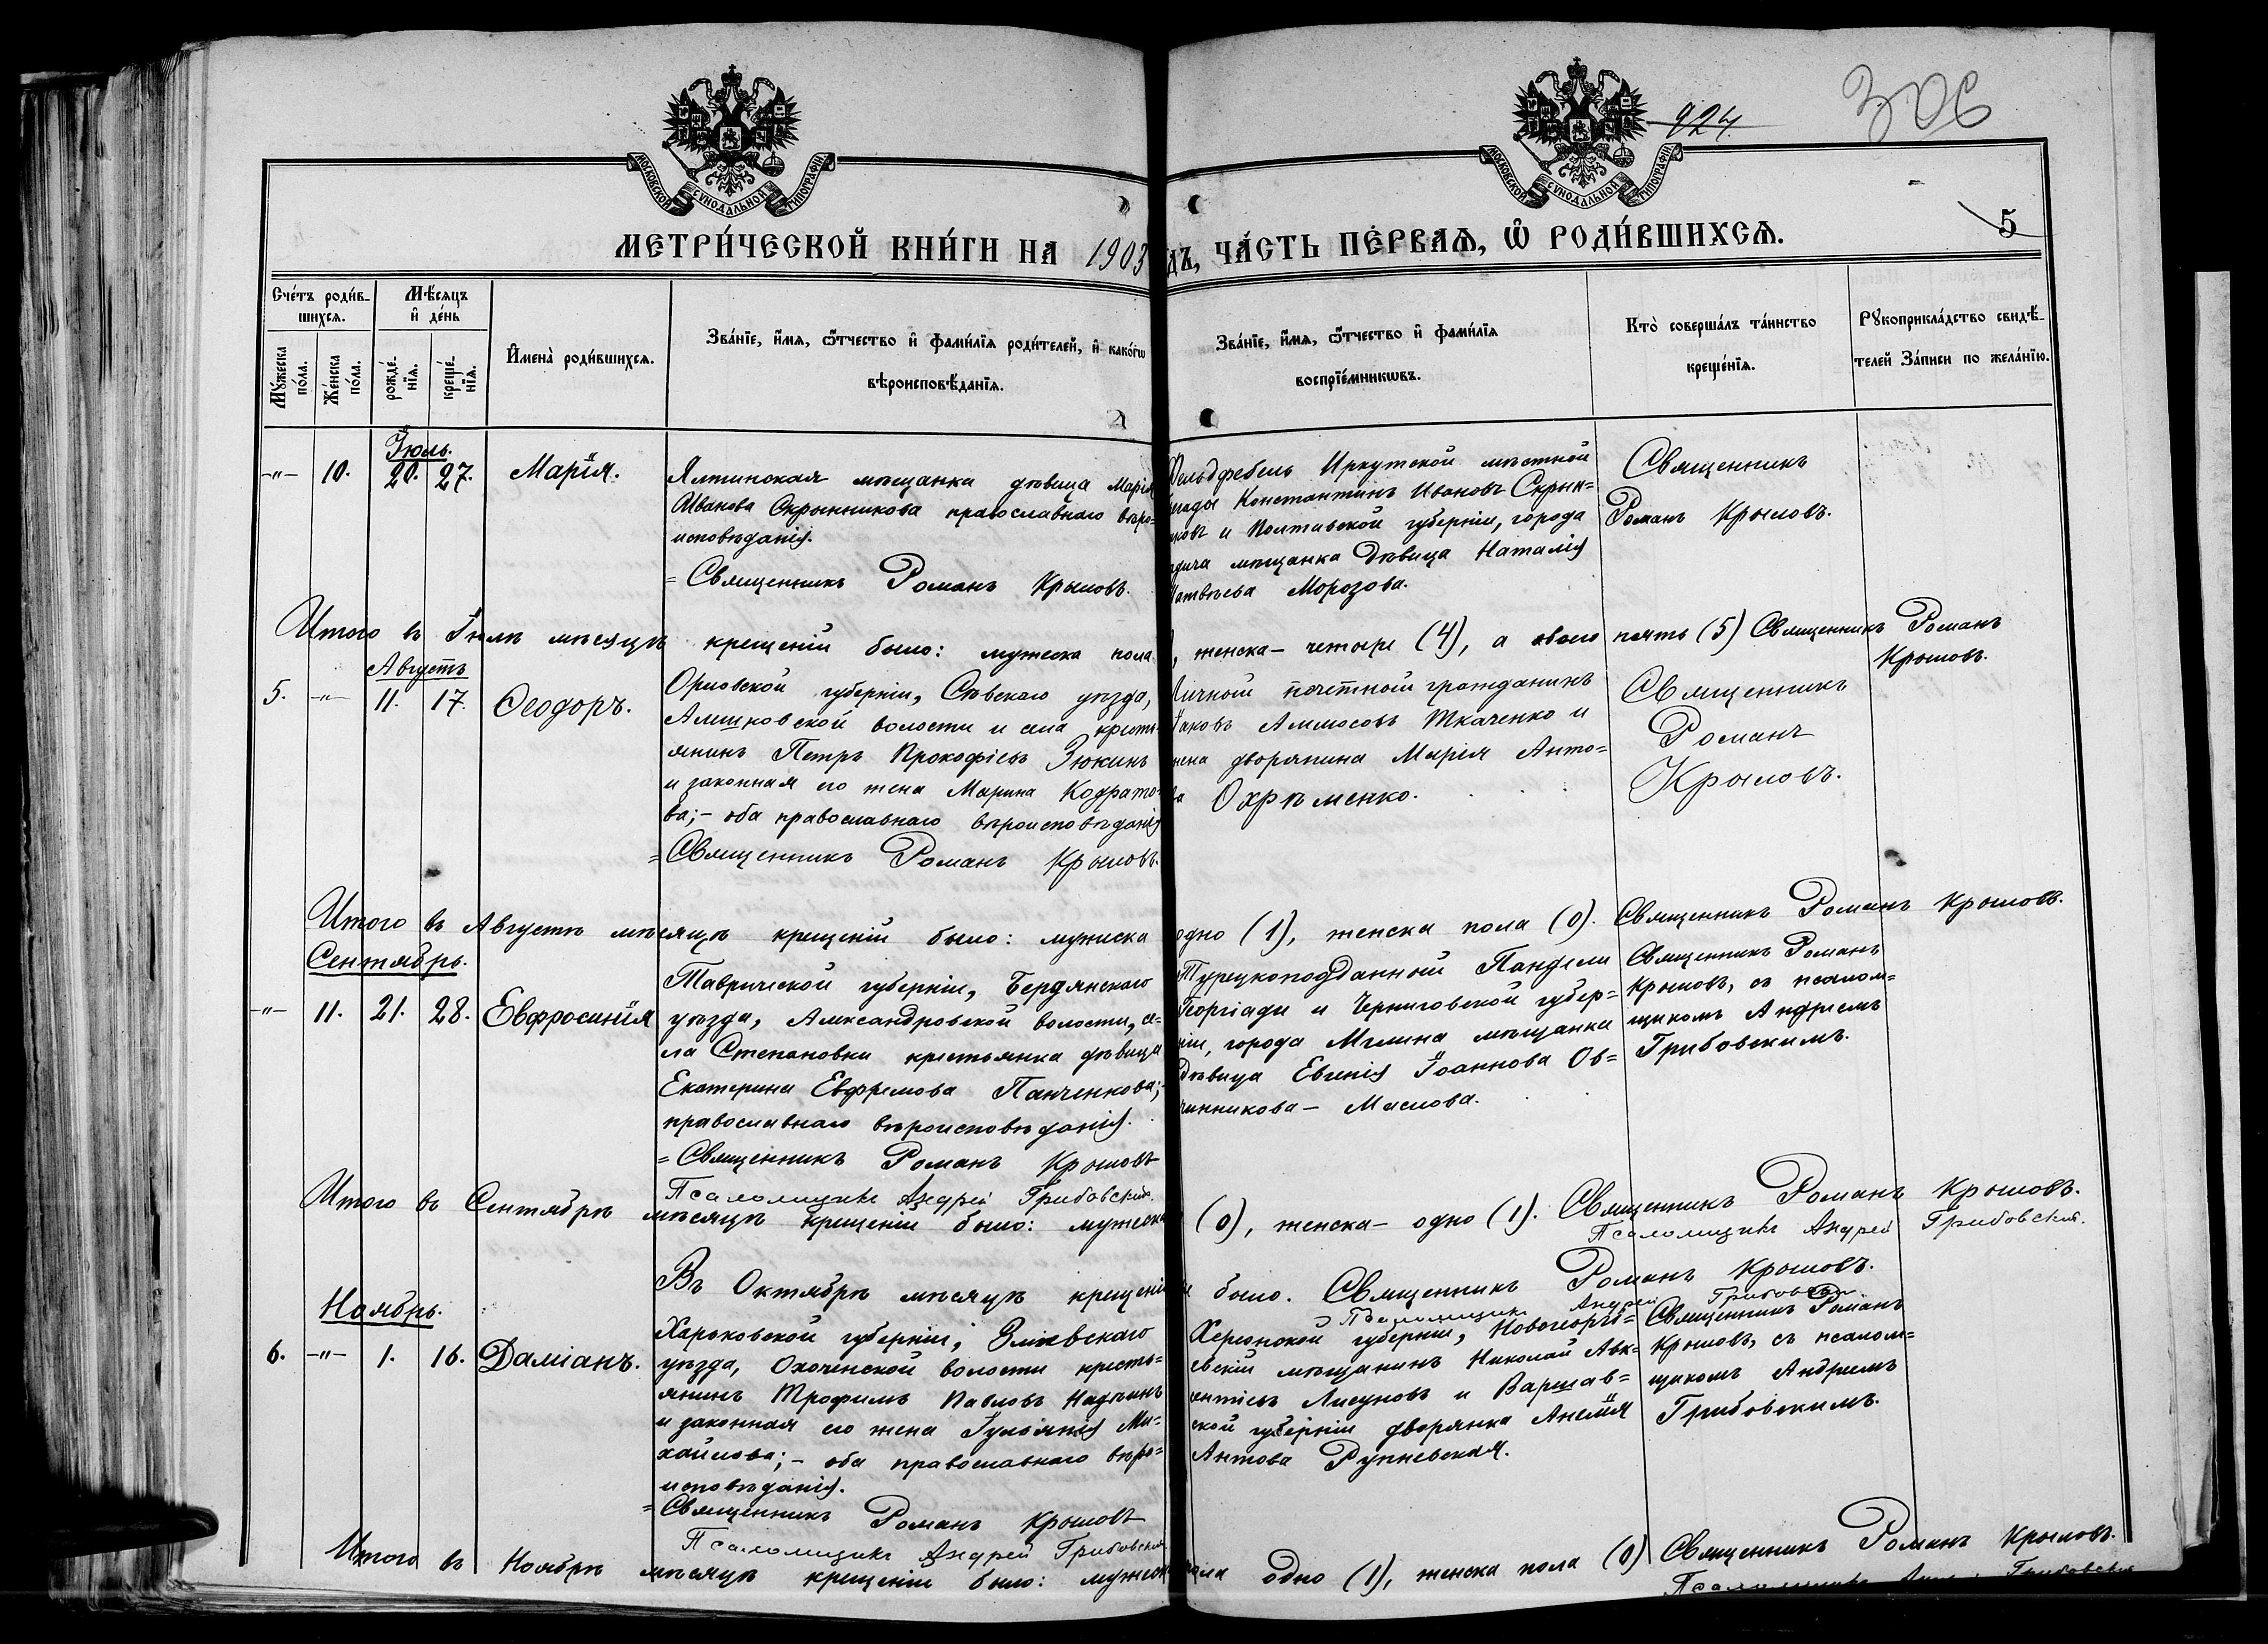 924.
306
МОСКОВСКОЙ СѴНОДАЛЬНОЙ ТИПОГРАФІИ
МОСКОВСКОЙ СѴНОДАЛЬНОЙ ТИПОГРАФІИ
5
МЕТРИ́ЧЕСКОЙ КНИ́ГИ НА 1903 ДЪ, ЧА́СТЬ ПЕ́РВАѦ, Ѡ҆ РОДИ́ВШИХСѦ.
Сче́тъ роди́в-
шихсѧ.
Мѣ́сѧцъ
и҆ де́нь
Мꙋ́жеска
по́ла.
Же́нска
по́ла.
рожде́-
нїѧ.
креще́-
нїѧ.
И҆мена̀ роди́вшихсѧ.
Зва́нїе, и҆́мѧ, ѻ҆́тчество и҆ фами́лїѧ роди́телей, и҆ како́гѡ
вѣроисповѣ́данїѧ.
Зва́нїе, и҆́мѧ, ѻ҆́тчество и҆ фами́лїѧ
воспрїе́мникѡвъ.
Кто̀ соверша́лъ та́инство
креще́нїѧ.
Рꙋкоприкла́дство свидѣ́-
телей за́писи по жела́нїю.
Іюль.
-"- 10. 20. 27. Марія.
Ялтинская мѣщанка дѣвица Марія
Иванова Скрынникова православнаго вѣро=
исповѣданія.
= Священникъ Романъ Крыловъ.
Фельдфебель Иркутской мѣстной
Константинъ Ивановъ Скрын=
и Полтавской губерніи, города
мѣщанка дѣвица Наталія
Морозова.
Священникъ
Романъ Крыловъ.
Итого въ Іюлѣ мѣсяцѣ крещеній было: мужеска пола , женска - четыре (4), а обоего пять (5) Священникъ Романъ
Крыловъ.
Августъ
5. -"- 11. 17. Ѳеодоръ.
Орловской губерніи, Сѣвскаго уѣзда,
Алешковской волости и села кресть=
янинъ Петръ Прокофіевъ Зюкинъ
и законная его жена Марина Кодрато=
ва; - оба православнаго вѣроисповѣданія
= Священникъ Романъ Крыловъ.
Личной почетной гражданинъ
Яковъ Аммосовъ Ткаченко и
жена дворянина Марія Анто=
Охрѣменко.
Священникъ
Романъ
Крыловъ.
Итого въ Августѣ мѣсяцѣ крещеній было: мужеска одно (1), женска пола (0). Священникъ Романъ Крыловъ.
Сентябрь.
-"- 11. 21. 28. Евфросинія
Таврической губерніи, Бердянскаго
уѣзда, Александровской волости, се=
ла Степановки крестьянка дѣвица
Екатерина Евфремова Панченкова;
православнаго вѣроисповѣданія.
= Священникъ Романъ Крыловъ
Псаломщикъ Андрей Грибовскій.
Турецкоподданной Пантели
Георгіади и Черниговской губер=
ніи, города Мглина мѣщанка
дѣвица Евгенія Іоаннова Ов=
чинникова - Маслова.
Священникъ Романъ
Крыловъ, съ псалом=
щикомъ Андреемъ
Грибовскимъ.
Итого въ Сентябрѣ мѣсяцѣ крещеній было: мужеска (0), женска - одно (1). Священникъ Романъ Крыловъ.
Псаломщикъ Андрей Грибовскій.
Въ Октябрѣ мѣсяцѣ крещеній было. Священникъ Романъ Крыловъ.
Псаломщикъ Андрей Грибовскій.
Ноябрь.
6. -"- 1. 16. Даміанъ.
Харьковской губерніи, Зміевскаго
уѣзда, Охоченской волости кресть=
янинъ Трофимъ Павловъ Надѣинъ
и законная его жена Іуліанія Ми=
хайлова; - оба православнаго вѣро=
исповѣданія.
= Священникъ Романъ Крыловъ
Псаломщикъ Андрей Грибовскій
Херсонской губерніи, Новогеоргі=
евскій мѣщанинъ Николай Авк=
ентіевъ Лисуновъ и Варшав=
ской губерніи дворянка Анелія
Антова Рупневская.
Священникъ Романъ
Крыловъ, съ псалом=
щикомъ Андреемъ
Грибовскимъ.
Итого въ Ноябрѣ мѣсяцѣ крещеній было: мужеска пола одно (1), женска пола (0) Священникъ Романъ Крыловъ.
Псаломщикъ Грибовскій